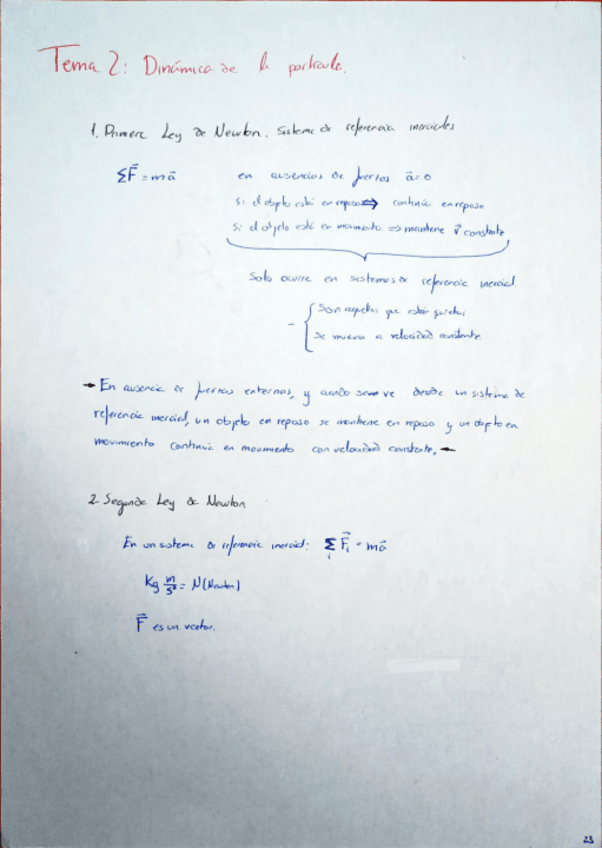 Tema 2: Dinámica de la partícula.
1. Primera Ley de Newton. Sistema de referencia inerciales
ΣF⃗ = m a⃗ en ausencias de fuerzas a⃗ = 0
Si el objeto está en reposo ⇒ continúa en reposo
Si el objeto está en movimiento ⇒ mantiene v⃗ constante
Solo ocurre en sistemas de referencia inercial
- { Son aquellos que están quietos
Se mueven a velocidad constante
→ En ausencia de fuerzas externas, y cuando se ve desde un sistema de
referencia inercial, un objeto en reposo se mantiene en reposo y un objeto en
movimiento continúa en movimiento con velocidad constante. ←
2. Segunda Ley de Newton
En un sistema de referencia inercial: Σᵢ F⃗ᵢ = m a⃗
Kg m/s² = N (Newton)
F⃗ es un vector.
23